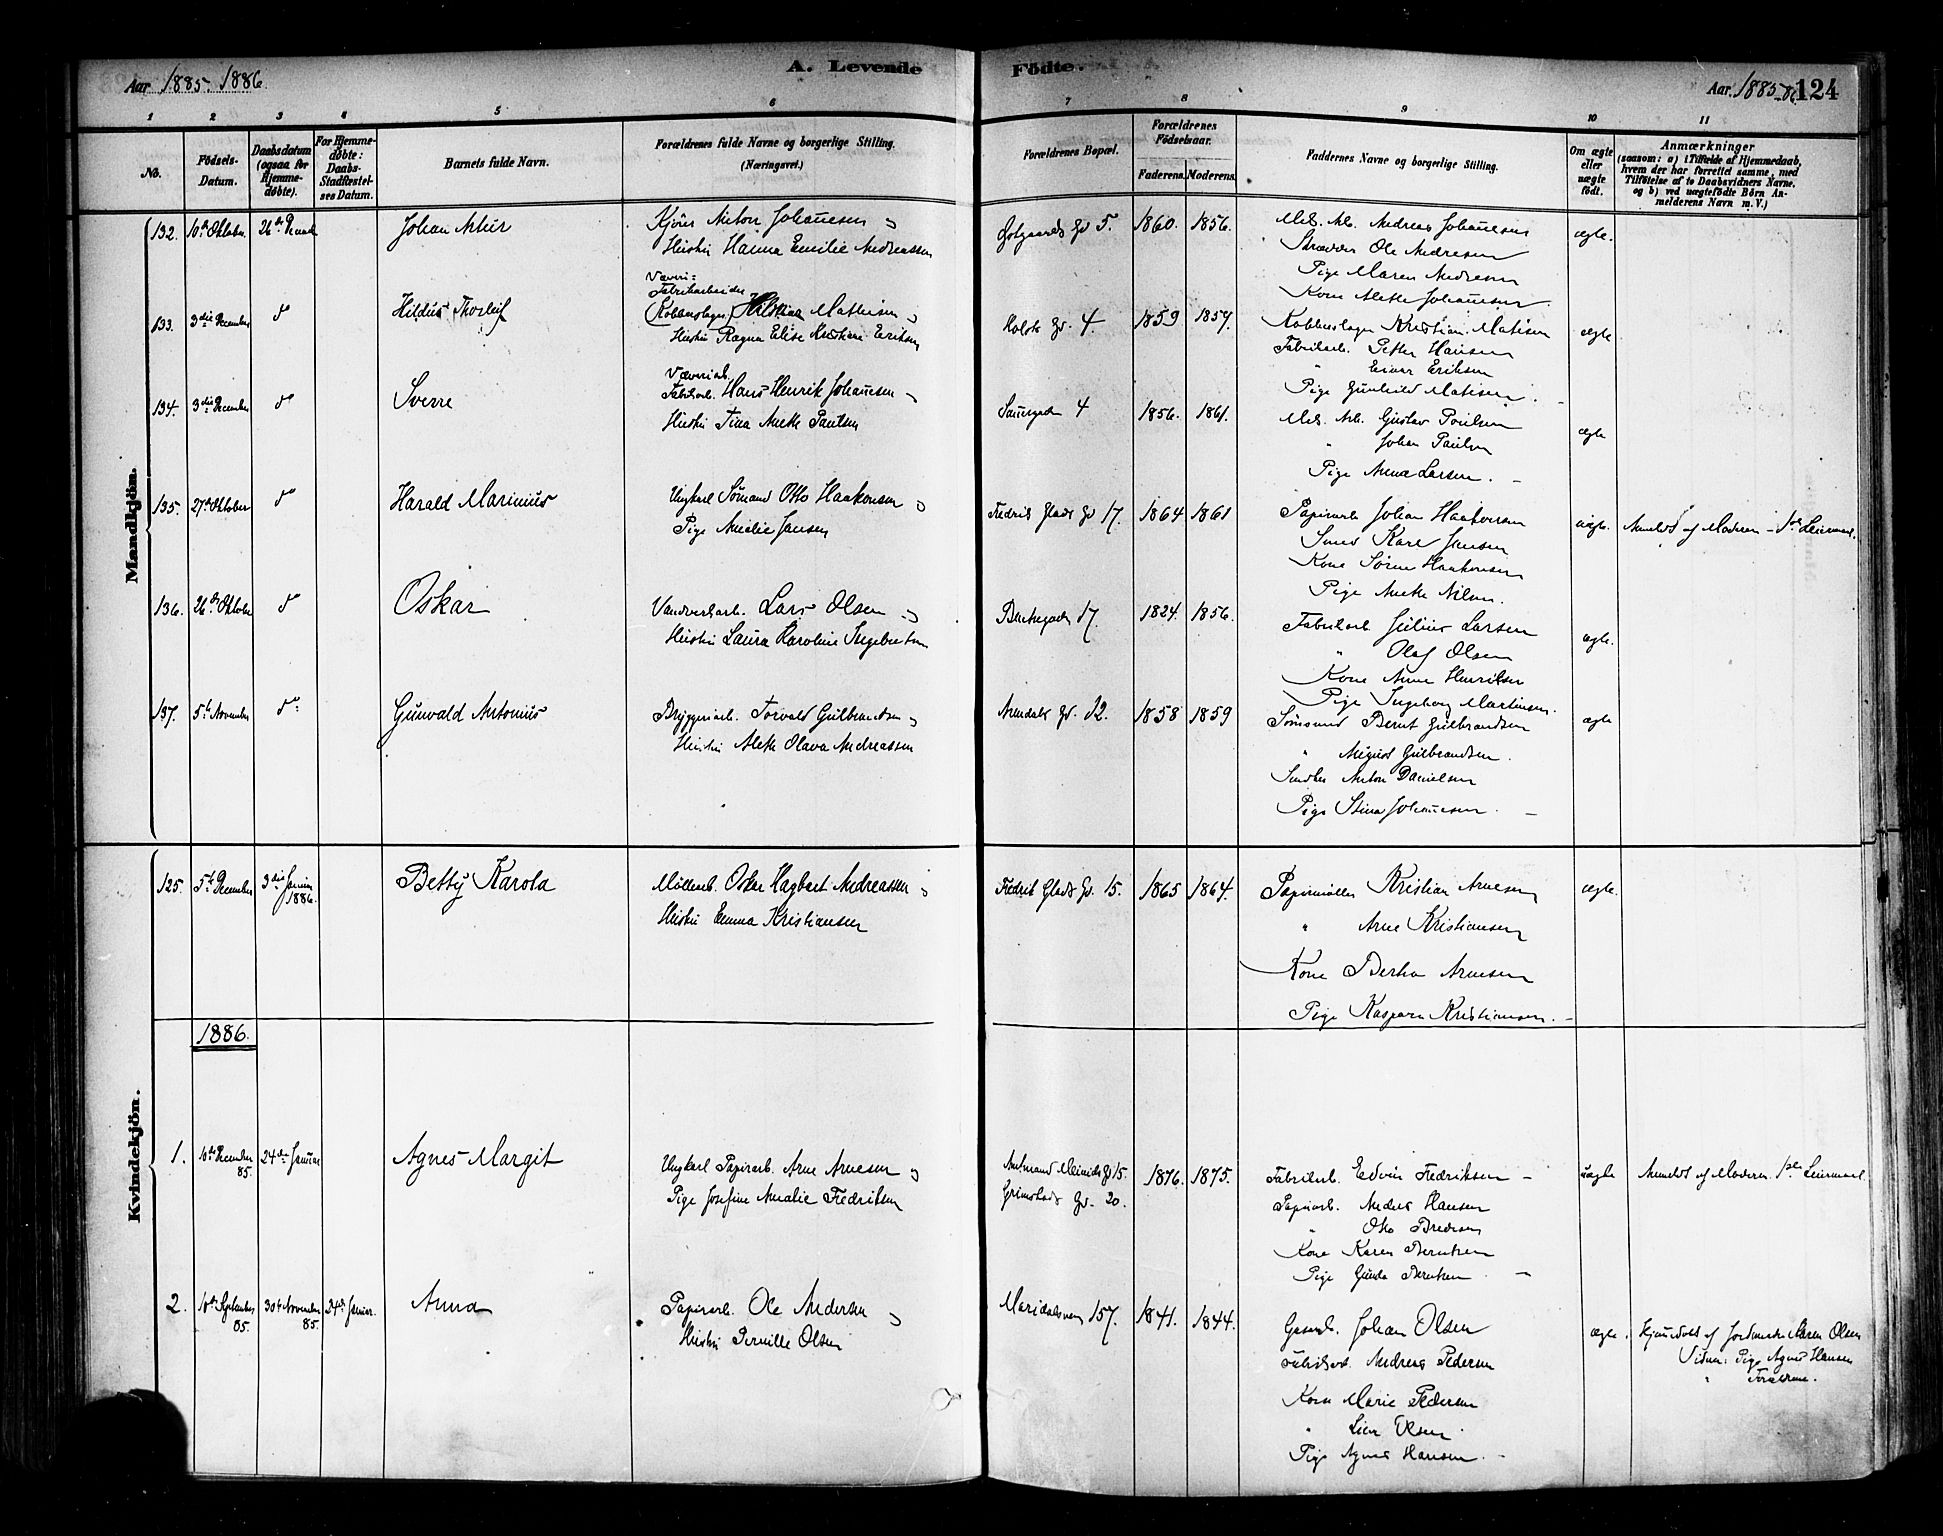 Aar 1885-1886. A. Levende Fødte. Aar 1885-86. 124
1 2 3 4 5 6 7 8 9 10 11
No.
Fødsels-Datum.
Daabsdatum (ogsaa for Hjemmedøbte).
For Hjemmedøbte: Daabs-Stadfæstelses Datum.
Barnets fulde Navn.
Forældrenes fulde Navne og borgerlige Stilling.
(Næringsvei.)
Forældrenes Bopæl.
Forældrenes Fødselsaar.
Faderens. Moderens.
Faddernes Navne og borgerlige Stilling.
Om ægte eller uægte født.
Anmærkninger
(saasom: a) i Tilfælde af Hjemmedaab,
hvem der har forrettet samme, med
Tilføielse af to Daabsvidners Navne,
og b) ved uægtefødte Børn Anmelderens Navn m. V.)
Mandkjøn.
132. 10de Oktober. 26de Decemb Johan Artur
Kjører Anton Johannesen
Hustru Hanna Emilie Andreassen
Gd 5. 1860. 1856.
Andreas Johannesen
Ole Andresen
Pige Maren Andresen
Kone Alette Johannesen
ægte.
133. 3die December do Hildus Thorleif
Væveri=
Fabrikarbeider
(Kobberslager) Mathisen
Hustru Ragna Elise Kristiane Eriksen
Holsts Gd. 4 1859 1859
Kobberslager Kristian Matisen
Fabrikarb. Petter Hansen
" Einar Eriksen
Pige Gunhild Matisen.
ægte
134. 3die December do Sverre
Væveriarb.
Fabrikarb. Hans Henrik Johannesen
Hustru Tina Anette Paulsen
4 1856. 1861.
Arb. Gustav Poulsen
" Johan Paulsen
Pige Anna Larsen.
ægte
135. 27de Oktober do Harald Marinius
Ungkarl Sømand Otto Haakonsen
Pige Amalie Jansen
Fredrik Glads Gd 17. 1864 1861
Papirarb. Johan Haakonsen
Smed Karl Jansen
Kone Sørine Haakonsen
Pige Anette Nilsen.
uægte. Anmeldt af Moderen - 1ste Leiermaal.
136. 26de Oktober do Oskar
Vandverksarb. Lars Olsen
Hustru Laura Karoline Ingebretsen
17. 1824. 1856.
Fabrikarb. Julius Larsen
" Olaf Olsen
Kone Anne Henriksen
Pige Ingeborg Martinsen.
ægte.
137. 5te November do Gunvald Antonius
Bryggeriarb. Torvald Gulbrandsen
Hustru Alette Olava Andreassen
Arendals Gd. 12. 1858 1859
Sømand Bernt Gulbrandsen
" August Gulbrandsen.
Snedker Anton Danielsen
Pige Stina Johannesen.
ægte
Kvindekjøn.
125. 5te December 3die Januar 1886. Betty Karola
Møllerarb. Oskar Hagbart Andreassen
Hustru Emma Kristiansen
Fredrik Glads Gd. 15. 1865 1864.
Papirmøller Kristian Arnesen
" Arne Kristiansen
Kone Berta Arnesen
Pige Kaspara Kristiansen.
ægte.
1886.
1. 10de December 85. 24de Januar Agnes Margit
Ungkarl Papirarb. Arne Arnesen
Pige Josefine Amalie Fredriksen
Amtmand Meinichs Gd 15.
Grimstads Gd. 20.
1876. 1875.
Fabrikarb. Edvin Fredriksen
Papirarb. Anders Hansen
" Otto Bredesen
Kone Karen Berntsen
Pige Gunda Berntsen.
uægte Anmeldt af Moderen. 1ste Leiermaal.
2. 10de September 85. 30te November 85. 24de Januar. Anna
Papirarb. Ole Andersen
Hustru Pernille Olsen
Maridalsveien 157. 1841. 1844.
Johan Olsen
Fabrikarb. Andreas Pedersen
Kone Marie Pedersen
" Lina Olsen.
Pige Agnes Hansen.
ægte. Hjemmedøbt af Jordmoder Maren Olsen
Vidner: Pige Agnes Hansen
" Forældrene.